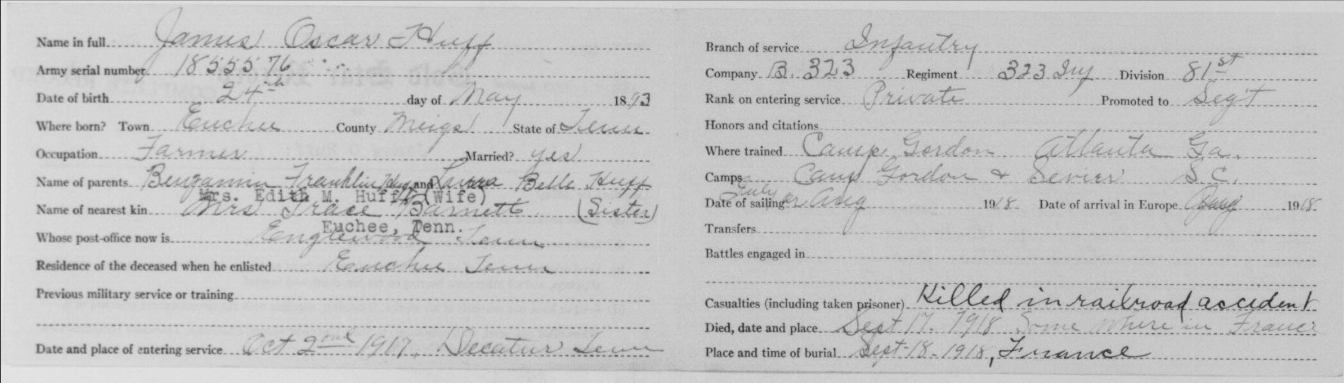 Name in full James Oscar Huff
Army serial number 1855576
Date of birth 24th day of May 1893
Where born? Town Euchee County Meigs State of Tenn
Occupation Farmer Married? yes
Name of parents Benjamin Franklin Huff and Laura Belle Huff
Mrs. Edith M. Huff (Wife)
Name of nearest kin Mrs Grace Barnett (Sister)
Euchee, Tenn.
Whose post-office now is Englewood Tenn
Residence of the deceased when he enlisted Euchee Tenn
Previous military service or training
Date and place of entering service Oct 2nd 1917, Decatur Tenn
Branch of service Infantry
Company B. 323 Regiment 323 Inf Division 81st
Rank on entering service Private Promoted to Segt
Honors and citations
Where trained Camp Gordon Atlanta Ga.
Camps Camp Gordon & Sevier S.C.
Date of sailing July or Aug 1918 Date of arrival in Europe Aug 1918
Transfers
Battles engaged in
Casualties (including taken prisoner) Killed in railroad accident
Died, date and place Sept 17. 1918 Some where in France
Place and time of burial Sept-18-1918, France